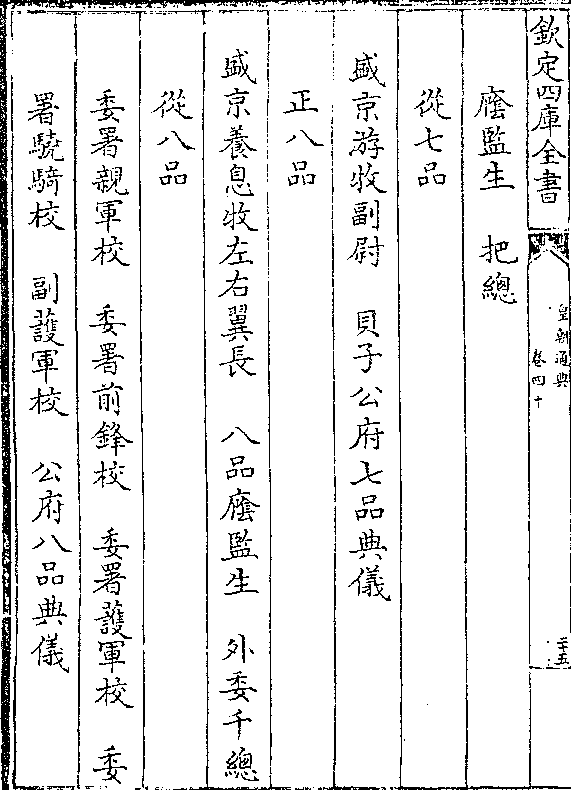 欽定四庫全書
皇朝通典
卷四十
二十五
廕監生 把總
從七品
盛京游牧副尉 貝子公府七品典儀
正八品
盛京養息牧左右翼長 八品廕監生 外委千總
從八品
委署親軍校 委署前鋒校 委署護軍校 委
署驍騎校 副護軍校 公府八品典儀